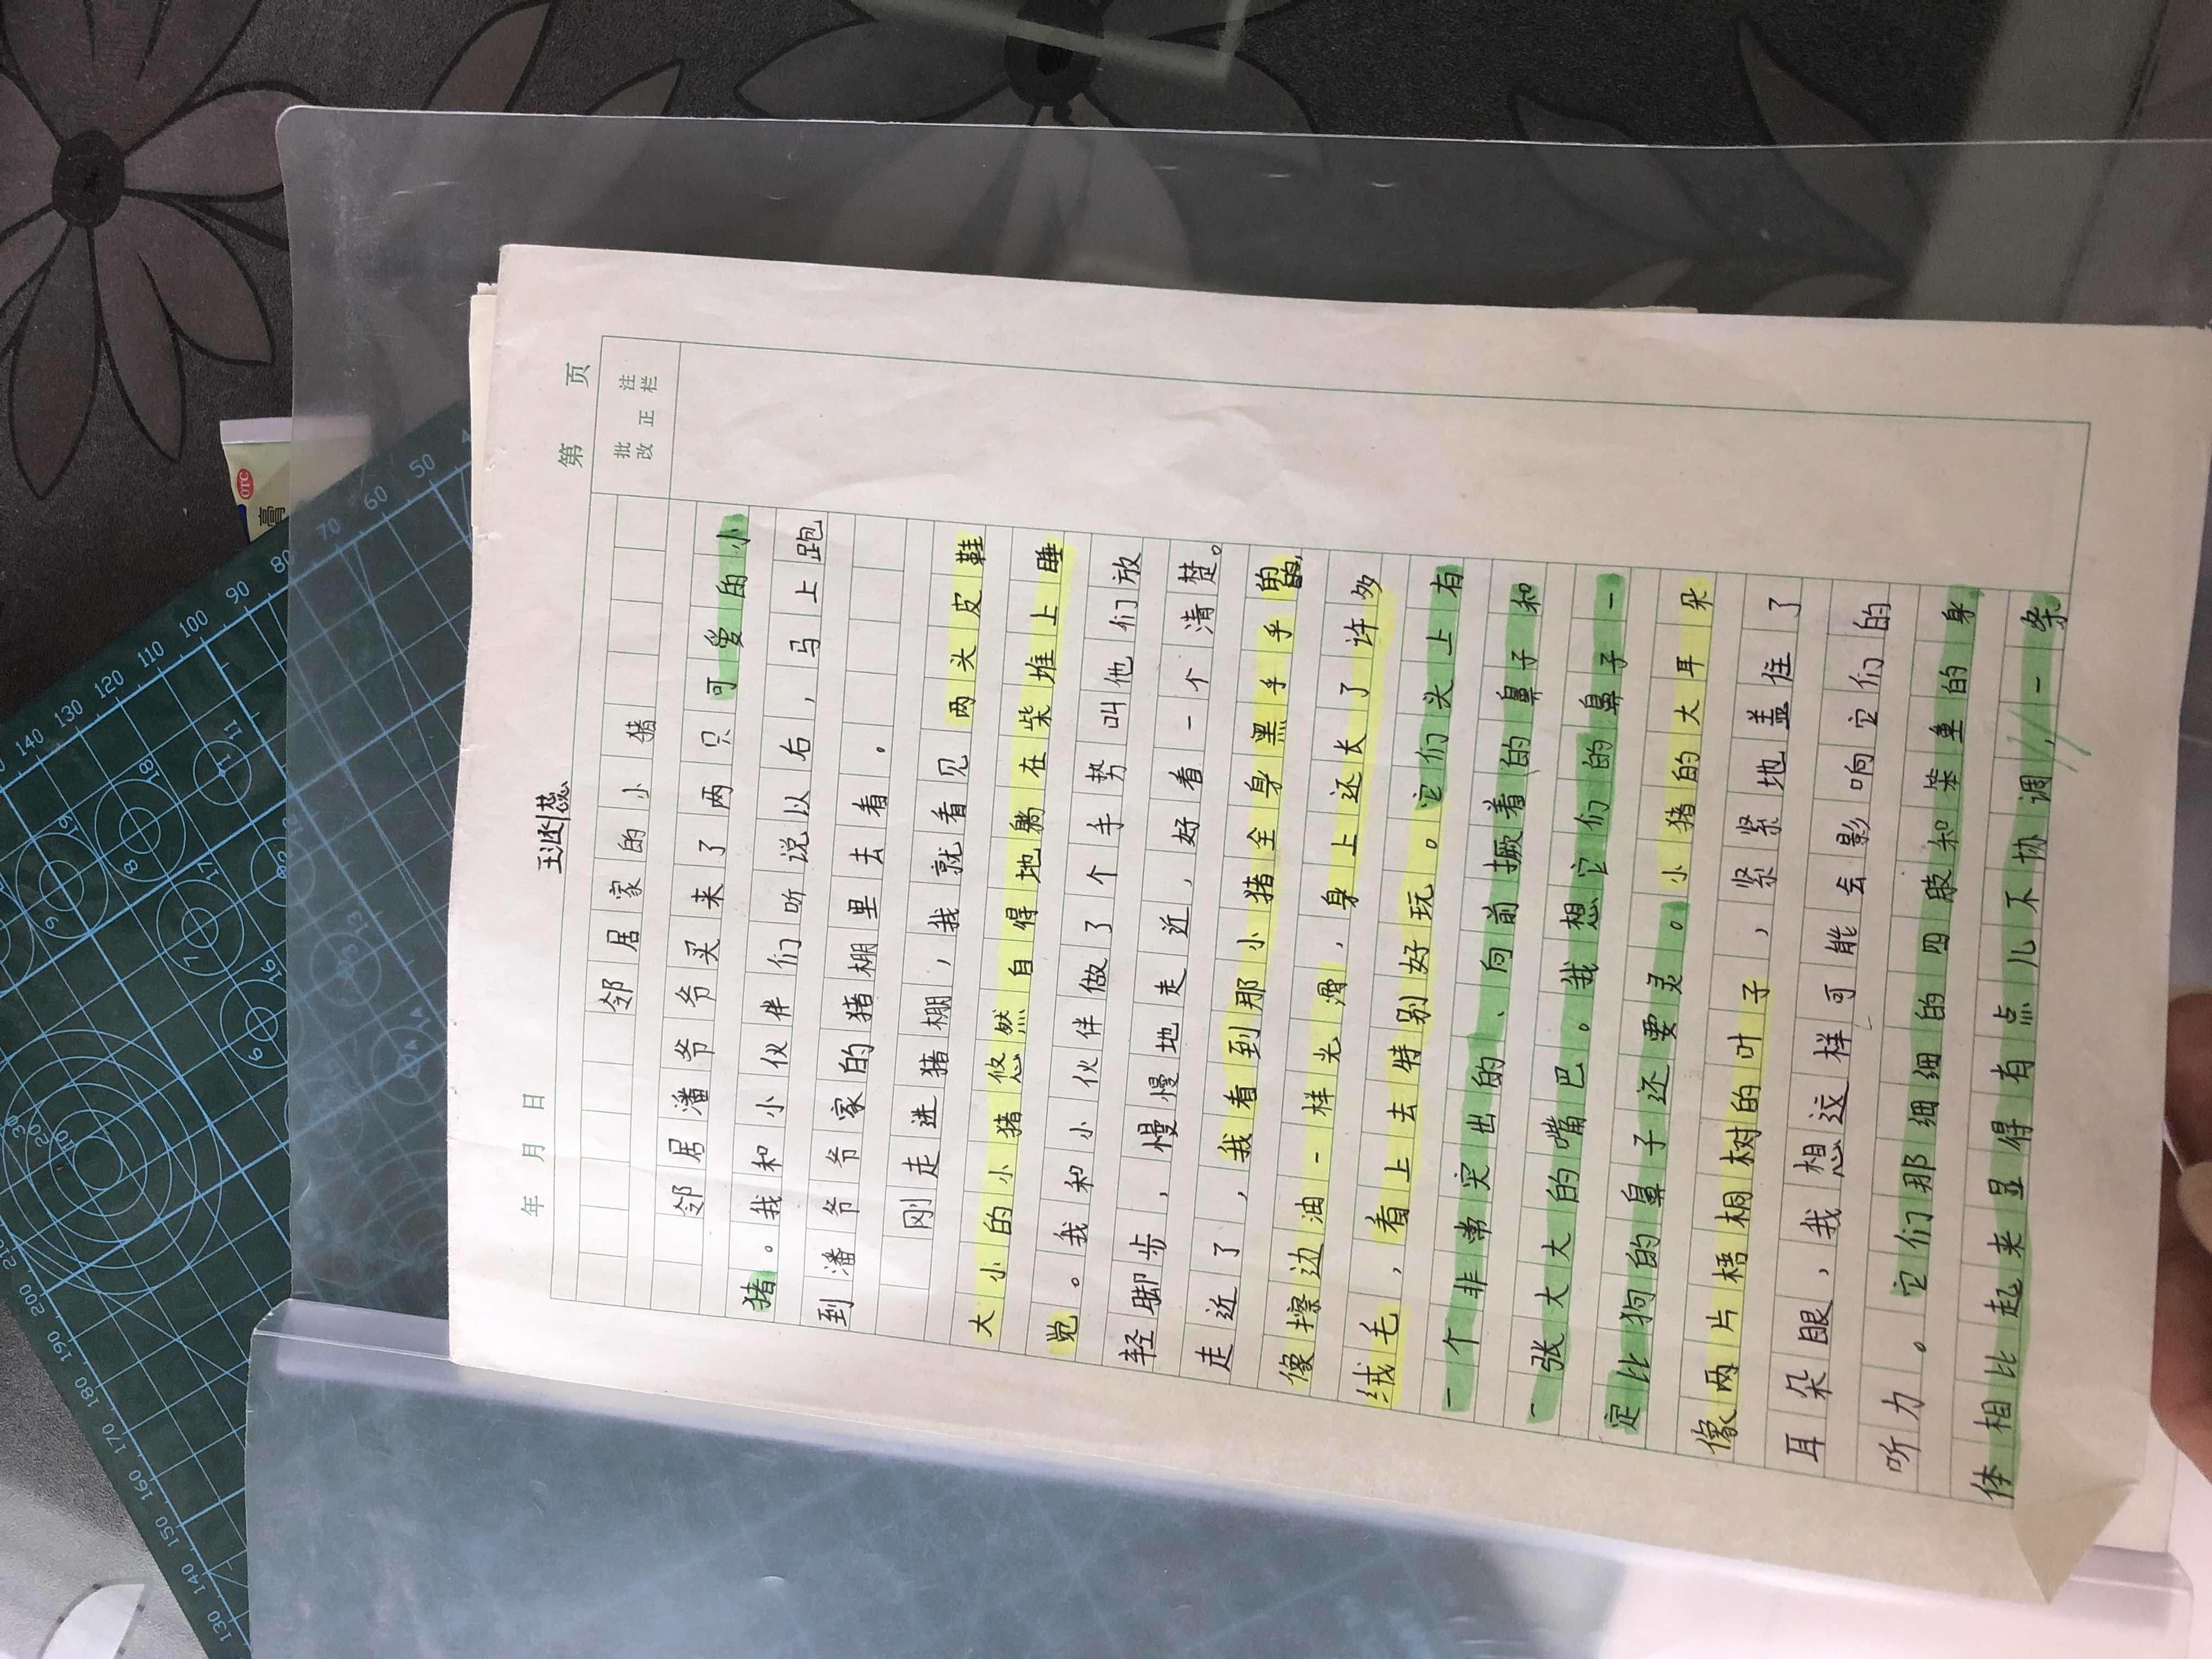 年 月 日
第 页
批改
注正栏
邻居家的小猪
邻居潘爷爷买来了两只可爱的小
猪。我和小伙伴们听说以右,马上跑
到潘爷爷家的猪棚里去看。
刚走进猪棚,我就看见两头皮鞋
大小的小猪悠然自得地躺在柴堆上睡
觉。我和小伙伴做了个手势叫他们放
轻脚步,慢慢地走近,好看一个清楚。
走近了,我看到那小猪全身黑乎乎的,
像擦边油一样光滑,身上还长了许多
绒毛,看上去特别好玩。它们头上有
一个非常突出的、向前撅着的鼻子和
一张大大的嘴巴。我想它们的鼻子一
定比狗的鼻子还要灵。小猪的大耳朵
像两片梧桐树的叶子,紧紧地盖住了
耳朵眼,我想这样可能会影响它们的
听力。它们那细细的四肢和笨重的身
体相比起来显得有点儿不协调,一条
OTC
膏
140
130
120
110
100
90
80
70
60
50
4
19
18
17
16
11
9
8
7
6
210
200
190
180
170
160
150
140
130
30
20
10